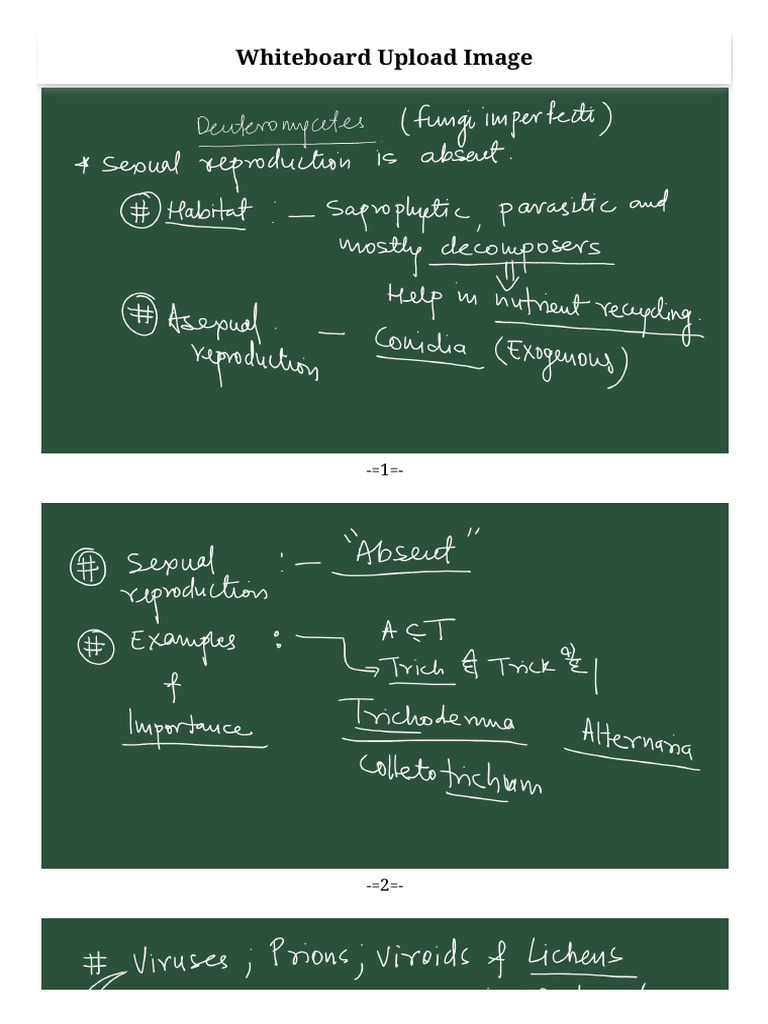 Whiteboard Upload Image
Deuteromycetes (fungi imperfecti)
* Sexual reproduction is absent.
# Habitat : — Saprophytic, parasitic and
mostly decomposers
⇓
Help in nutrient recycling.
# Asexual reproduction — Conidia (Exogenous)
-=1=-
# Sexual reproduction : — "Absent"
# Examples & Importance :
ACT
→ Trich की Trick है |
Trichoderma
Alternaria
Colletotrichum
-=2=-
# Viruses ; Prions ; Viroids & Lichens